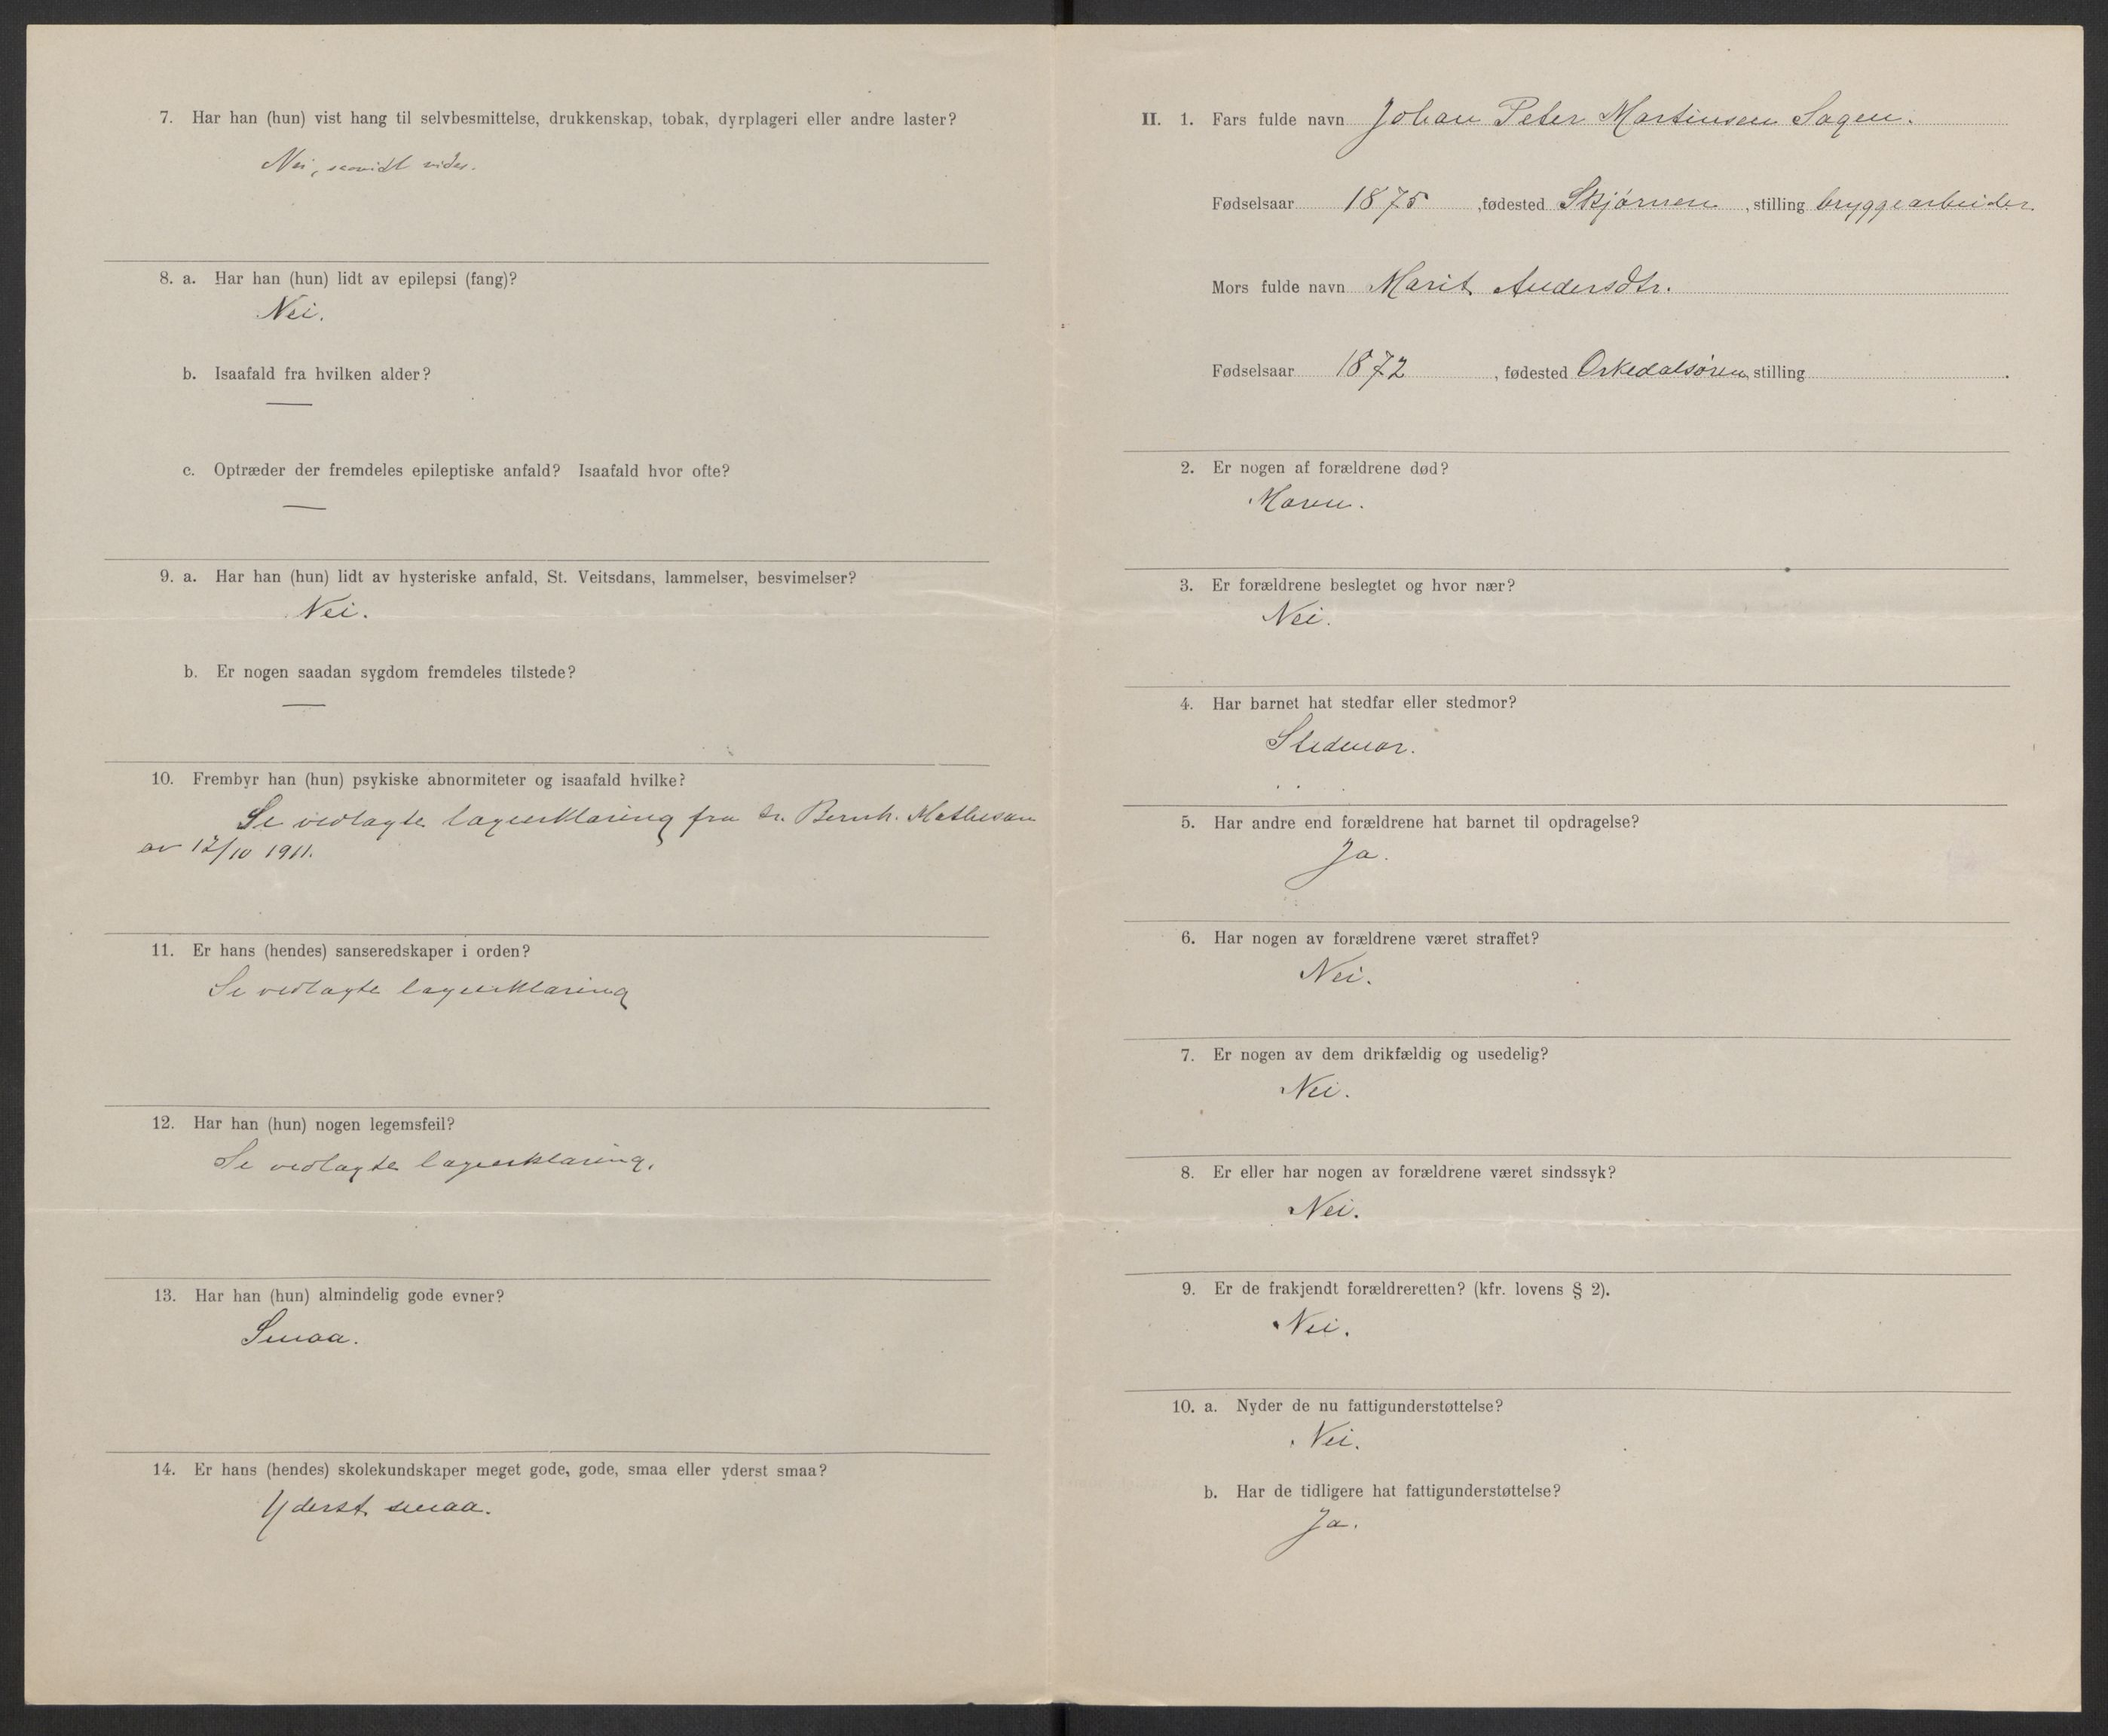 7. Har han (hun) vist hang til selvbesmittelse, drukkenskap, tobak, dyrplageri eller andre laster?
Nei, saavidt vides.
8. a. Har han (hun) lidt av epilepsi (fang)?
Nei.
b. Isaafald fra hvilken alder?
—
c. Optræder der fremdeles epileptiske anfald? Isaafald hvor ofte?
—
9. a. Har han (hun) lidt av hysteriske anfald, St. Veitsdans, lammelser, besvimelser?
Nei.
b. Er nogen saadan sygdom fremdeles tilstede?
—
10. Frembyr han (hun) psykiske abnormiteter og isaafald hvilke?
Se vedlagte lægeerklæring fra dr. Bernh. Mathesen
av 12/10 1911.
11. Er hans (hendes) sanseredskaper i orden?
Se vedlagte lægeerklæring
12. Har han (hun) nogen legemsfeil?
Se vedlagte lægeerklæring.
13. Har han (hun) almindelig gode evner?
Smaa.
14. Er hans (hendes) skolekundskaper meget gode, gode, smaa eller yderst smaa?
Yderst smaa.
II. 1. Fars fulde navn Johan Peter Martinsen Sagen.
Fødselsaar 1875, fødested Skjørnen, stilling bryggearbeider
Mors fulde navn Marit Andersdtr.
Fødselsaar 1872, fødested Orkedalsøren, stilling .
2. Er nogen af forældrene død?
Moren.
3. Er forældrene beslegtet og hvor nær?
Nei.
4. Har barnet hat stedfar eller stedmor?
Stedmor.
5. Har andre end forældrene hat barnet til opdragelse?
Ja.
6. Har nogen av forældrene været straffet?
Nei.
7. Er nogen av dem drikfældig og usedelig?
Nei.
8. Er eller har nogen av forældrene været sindssyk?
Nei.
9. Er de frakjendt forældreretten? (kfr. lovens § 2).
Nei.
10. a. Nyder de nu fattigunderstøttelse?
Nei.
b. Har de tidligere hat fattigunderstøttelse?
Ja.